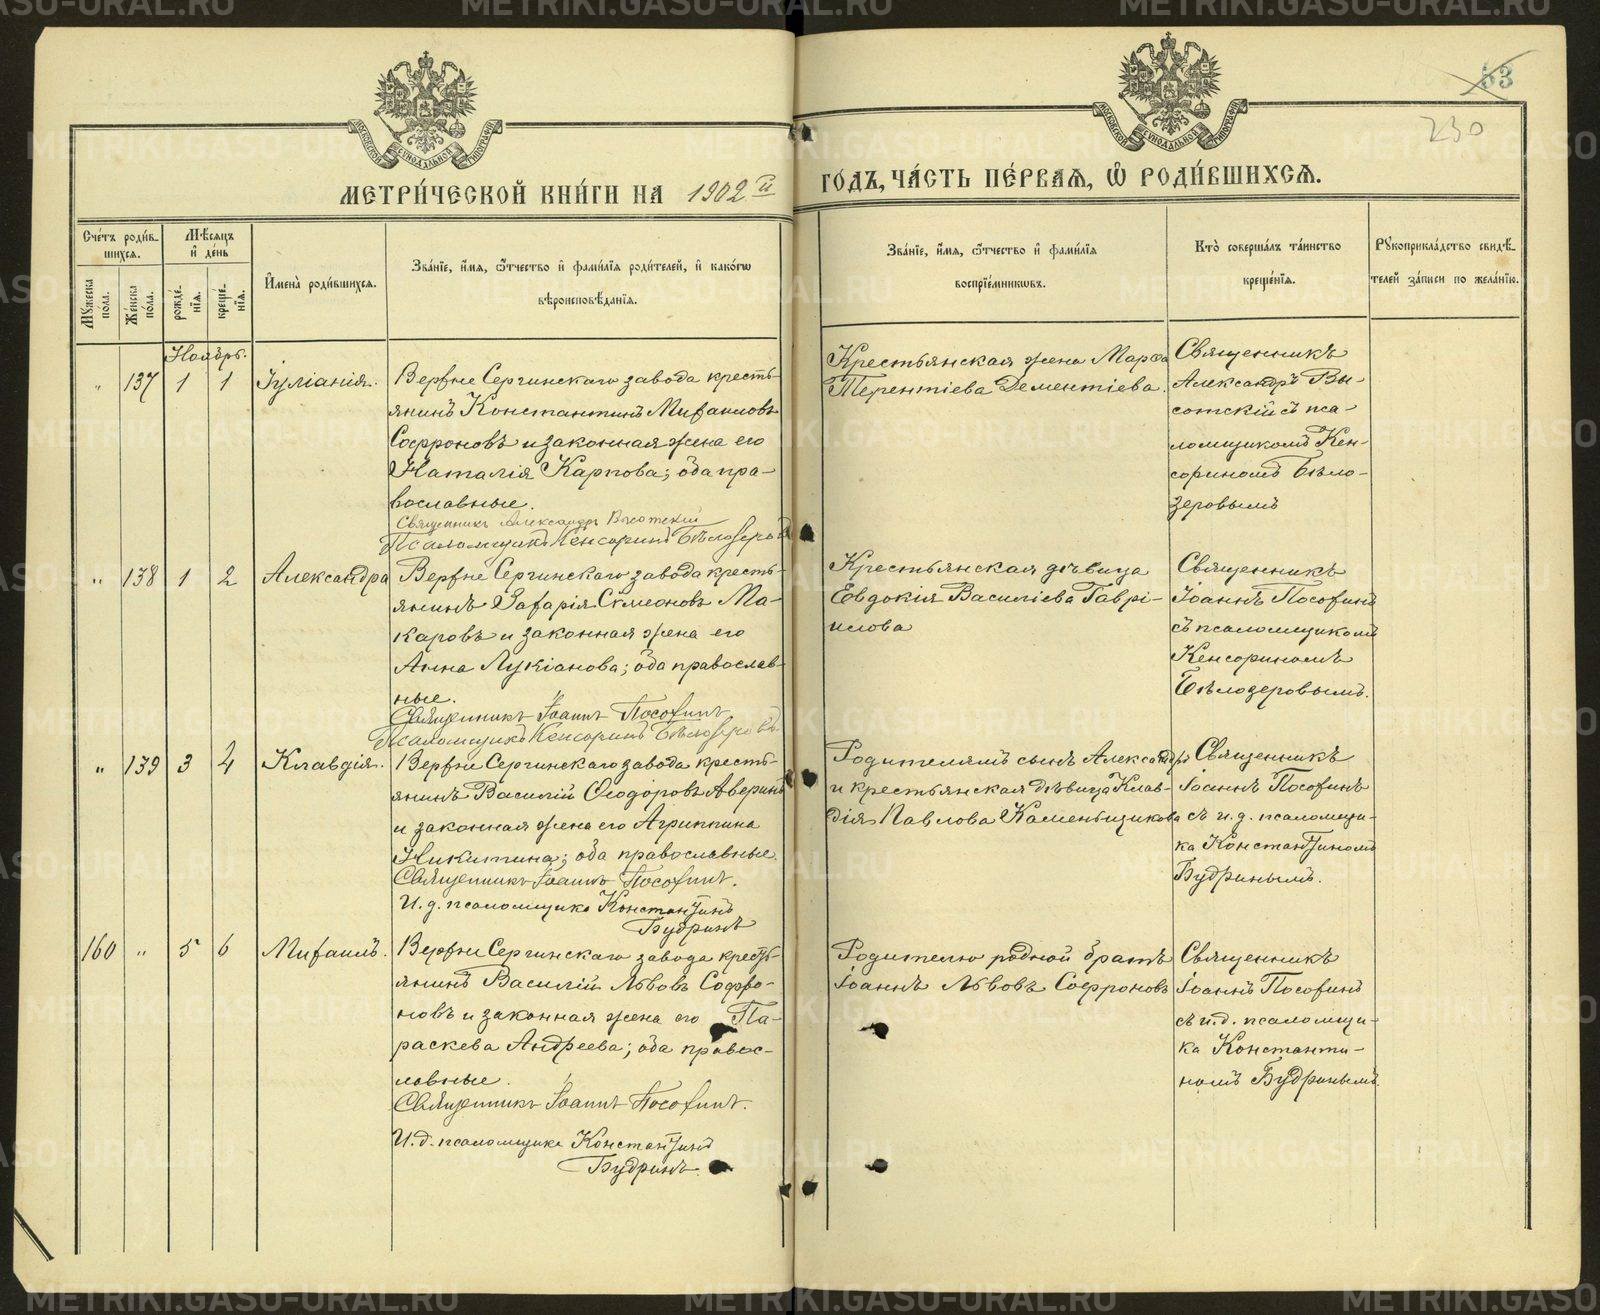 METRIKI.GASO-URAL.RU
53
230
МОСКОВСКОЙ СѴНОДАЛЬНОЙ ТИПОГРАФІИ
МОСКОВСКОЙ СѴНОДАЛЬНОЙ ТИПОГРАФІИ
МЕТРИ́ЧЕСКОЙ КНИ́ГИ НА 1902й ГО́ДЪ, ЧА́СТЬ ПЕ́РВАѦ, Ѽ РОДИ́ВШИХСѦ.
Сче́тъ роди́в-
шихсѧ.
Мѣ́сѧцъ
и҆ де́нь
Мꙋжеска
пола.
Же́нска
пола.
рожде́-
нїѧ.
креще́-
нїѧ.
И҆мена̀ роди́вшихсѧ.
Зва́нїе, и҆́мѧ, ѻ҆́тчество и҆ фами́лїѧ роди́телей, и҆ како́гѡ
вѣроисповѣ́данїѧ.
Зва́нїе, и҆́мѧ, ѻ҆́тчество и҆ фами́лїѧ
воспрїе́мникѡвъ.
Кто̀ соверша́лъ та́инство
креще́нїѧ.
Рꙋкоприкла́дство свидѣ́-
телей за́писи по жела́нїю.
Ноябрь.
" 137 1 1 Іуліанія.
Верхне Сергинскаго завода кресть-
янинъ Константинъ Михаиловъ
Софроновъ и законная жена его
Наталія Карпова; оба пра-
вославные.
Священникъ Александръ Высотскій
Псаломщикъ Кенсоринъ Бѣлозеровъ
Крестьянская жена Марѳа
Терентіева Дементіева.
Священникъ
Александръ Вы-
сотскій съ пса-
ломщикомъ Кен-
сориномъ Бѣло-
зеровымъ
" 138 1 2 Александра
Верхне Сергинскаго завода кресть-
янинъ Захарія Симеоновъ Ма-
каровъ и законная жена его
Анна Лукіанова; оба православ-
ные.
Священникъ Іоаннъ Посохинъ
Псаломщикъ Кенсоринъ Бѣлозеровъ
Крестьянская дѣвица
Евдокія Василіева Гаврі-
илова
Священникъ
Іоаннъ Посохинъ
съ псаломщикомъ
Кенсориномъ
Бѣлозеровымъ.
" 139 3 4 Клавдія.
Верхне Сергинскаго завода кресть-
янинъ Василій Ѳеодоровъ Аверинъ
и законная жена его Агриппина
Никитина; оба православные.
Священникъ Іоаннъ Посохинъ.
И. д. псаломщика Константинъ
Будринъ
Родителямъ сынъ Александръ
и крестьянская дѣвица Клав-
дія Павлова Каменьщикова
Священникъ
Іоаннъ Посохинъ
съ и. д. псаломщи-
ка Константиномъ
Будринымъ.
160 " 5 6 Михаилъ.
Верхне Сергинскаго завода кресть-
янинъ Василій Львовъ Софро-
новъ и законная жена его Па-
раскева Андреева; оба правос-
лавные.
Священникъ Іоаннъ Посохинъ.
И. д. псаломщика Константинъ
Будринъ.
Родителю родной братъ
Іоаннъ Львовъ Софроновъ
Священникъ
Іоаннъ Посохинъ
съ и. д. псаломщи-
ка Константи-
номъ Будринымъ.